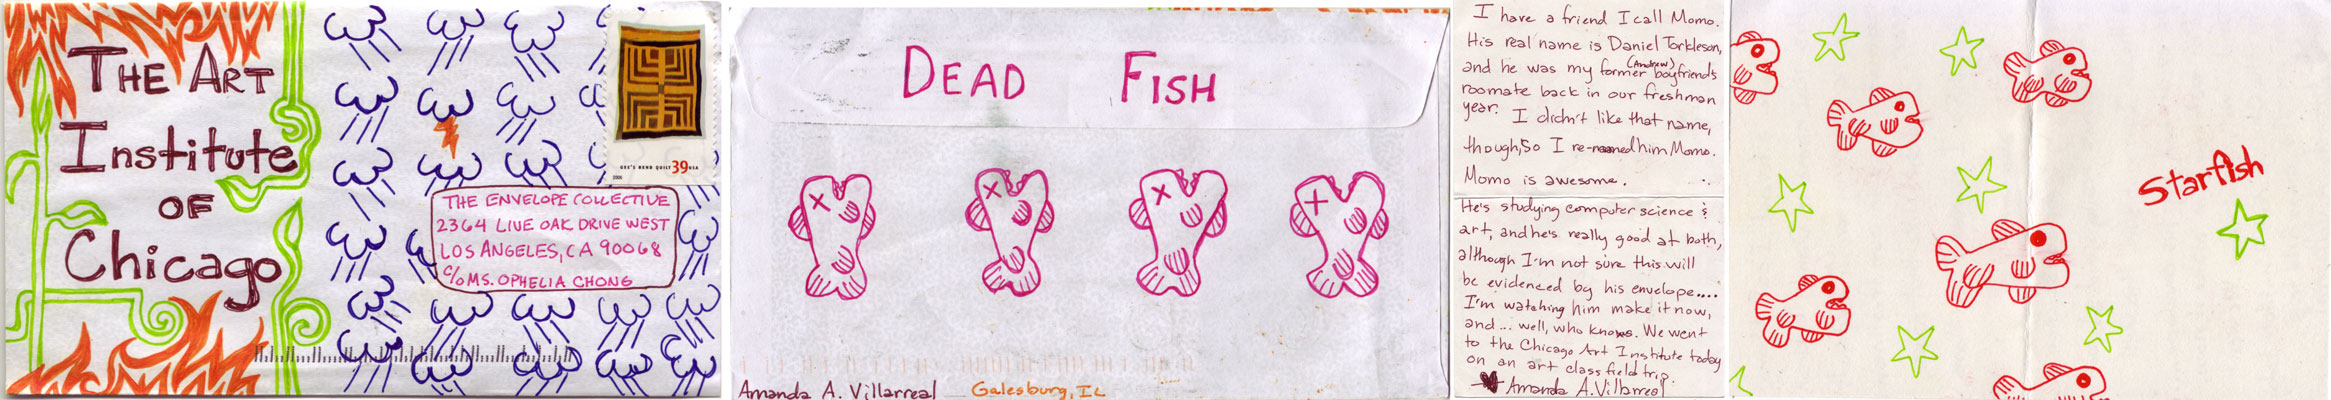 The Art
Institute
of
Chicago
GEE'S BEND QUILT 39 USA
2006
THE ENVELOPE COLLECTIVE
2364 LIVE OAK DRIVE WEST
LOS ANGELES, CA 90068
c/o MS. OPHELIA CHONG
DEAD FISH
Amanda A. Villarreal Galesburg, IL
I have a friend I call Momo.
His real name is Daniel Torkleson,
and he was my former (Andrew) boyfriend's
roomate back in our freshman
year. I didn't like that name,
though, so I re-named him Momo.
Momo is awesome.
He's studying computer science &
art, and he's really good at both,
although I'm not sure this will
be evidenced by his envelope....
I'm watching him make it now,
and... well, who knows. We went
to the Chicago Art Institute today
on an art class field trip.
♥ Amanda A. Villarreal
Starfish